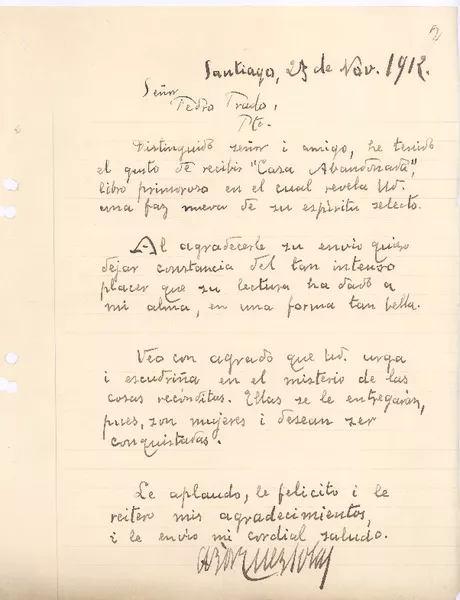 Santiago, 25 de Nov. 1912.
Señor
Pedro Prado,
Pte.
Distinguido señor i amigo, he tenido
el gusto de recibir "Casa Abandonada",
libro primoroso en el cual revela Ud.
una faz nueva de su espíritu selecto.
Al agradecerle su envío quiero
dejar constancia del tan intenso
placer que su lectura ha dado a
mi alma, en una forma tan bella.
Veo con agrado que Ud. urga
i escudriña en el misterio de las
cosas recónditas. Ellas se le entregarán,
pues, son mujeres i desean ser
conquistadas.
Le aplaudo, le felicito i le
reitero mis agradecimientos,
i le envío mi cordial saludo.